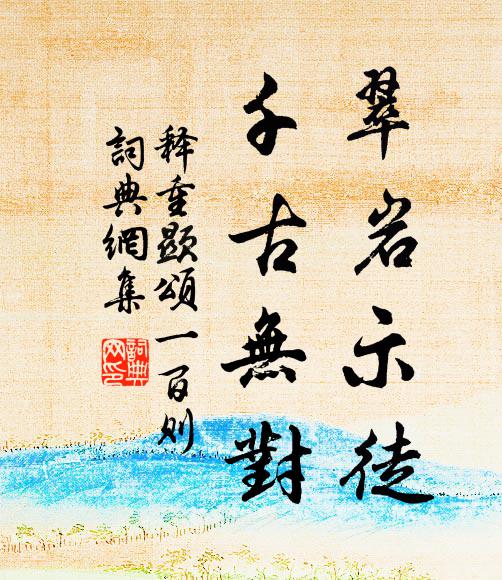 翠岩示徒
千古無對
释重顯頌一百则
詞典網集
詞典
网印